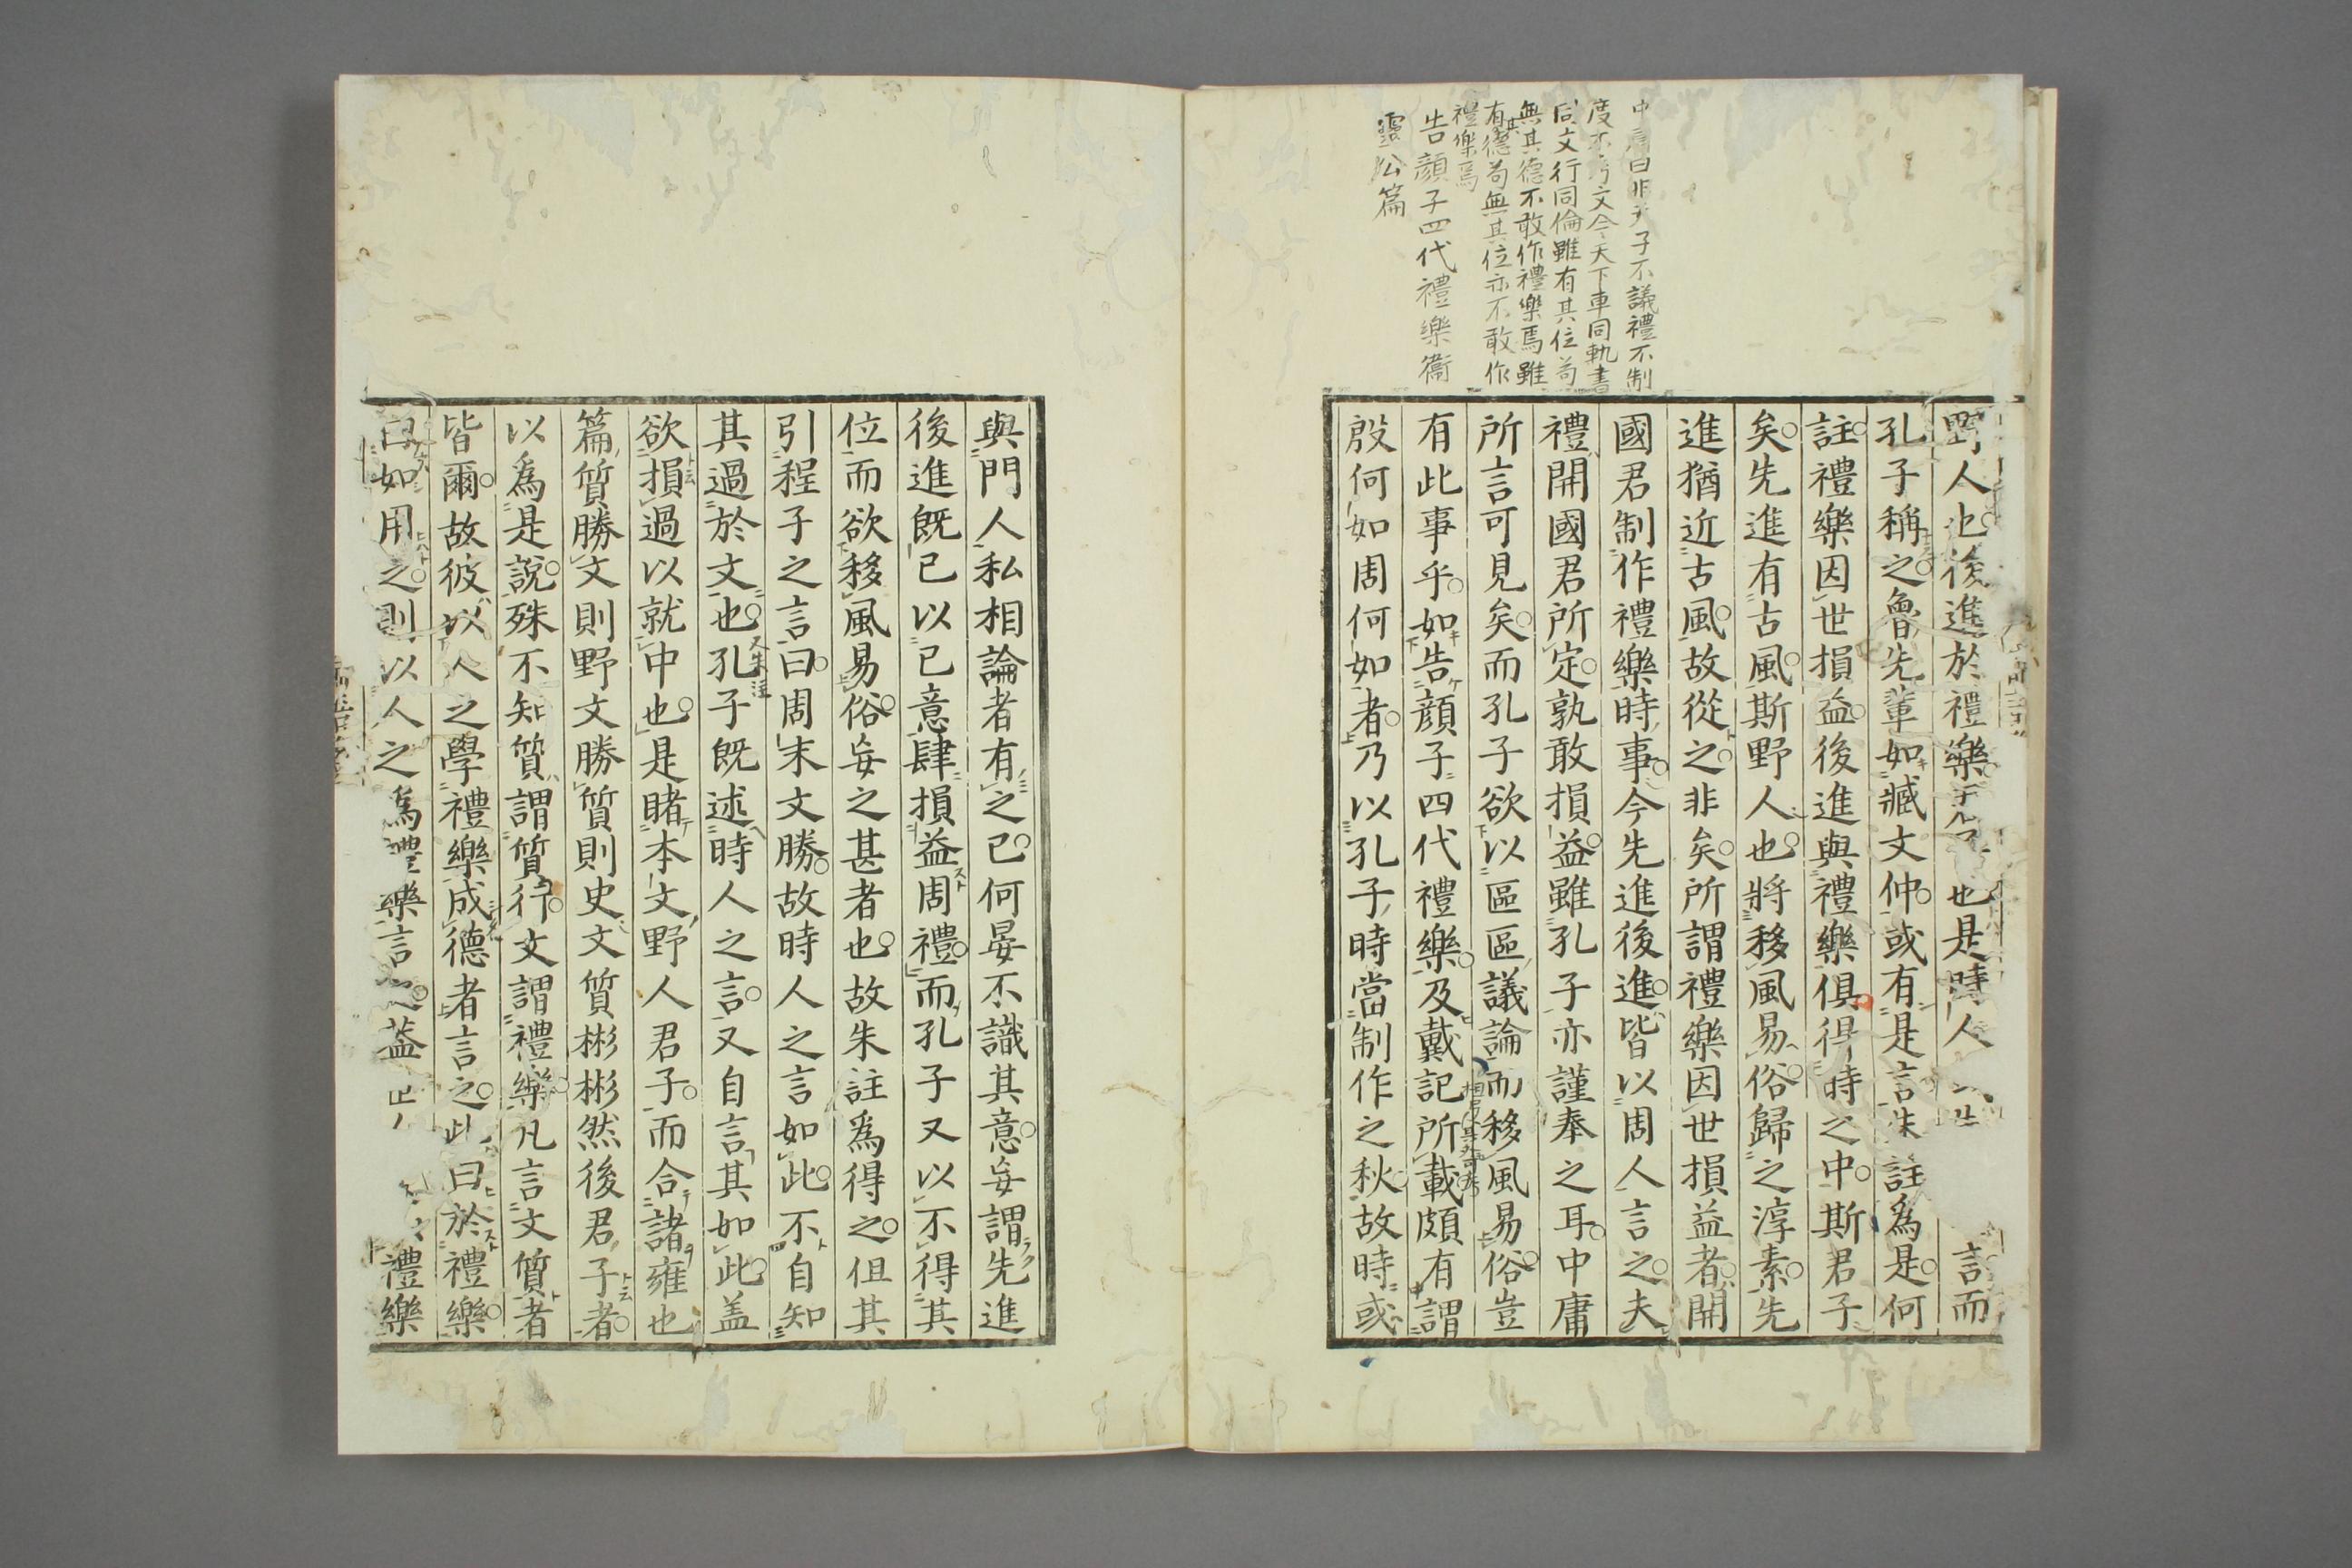 中庸曰非天子不議禮不制
度不考文今天下車同軌書
同文行同倫雖有其位苟
無其德不敢作禮樂焉雖
有其德苟無其位亦不敢作
禮樂焉
告顏子四代禮樂衞
靈公篇
野人也後進於禮樂君子也是時人言而
孔子稱之魯先輩如臧文仲或有是言朱註爲是何
註禮樂因世損益後進與禮樂俱得時之中斯君子
矣先進有古風斯野人也將移風易俗歸之淳素先
進猶近古風故從之非矣所謂禮樂因世損益者開
國君制作禮樂時事今先進後進皆以周人言之夫
禮開國君所定孰敢損益雖孔子亦謹奉之耳中庸
所言可見矣而孔子欲以區區議論而移風易俗豈
有此事乎如告顏子四代禮樂及戴記所載頗有謂
殷何如周何如者乃以孔子時當制作之秋故時或
與門人私相論者有之已何晏不識其意妄謂先進
後進既已以已意肆損益周禮而孔子又以不得其
位而欲移風易俗妄之甚者也故朱註爲得之但其
引程子之言曰周末文勝故時人之言如此不自知
其過於文也孔子既述時人之言又自言其如此盖
又朱注
欲損過以就中也是睹本文野人君子而合諸雍也
篇質勝文則野文勝質則史文質彬彬然後君子者
以爲是說殊不知質謂質行文謂禮樂凡言文質者
皆爾故彼以人之學禮樂成德者言之此曰於禮樂
曰如用之則以人之爲禮樂言之蓋禮樂